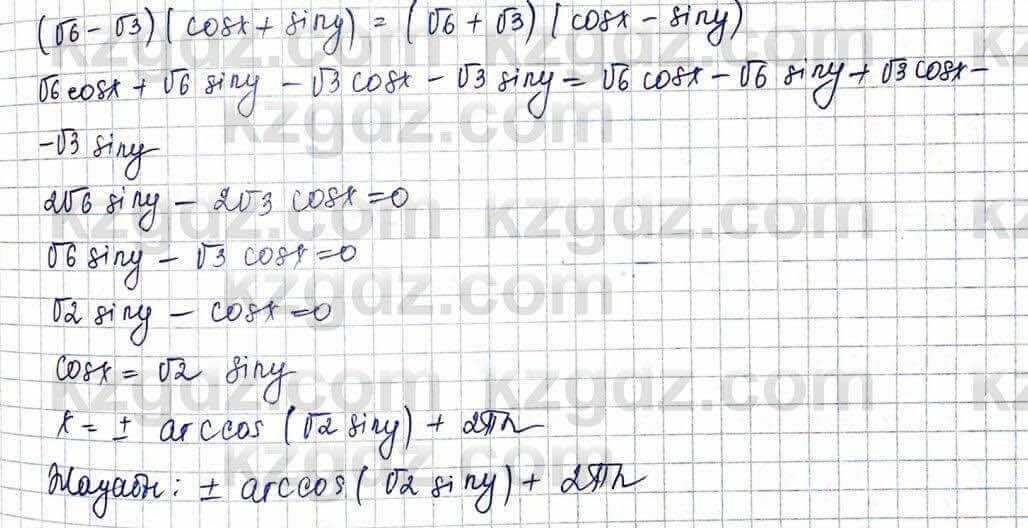 (√6 - √3)(cosx + siny) = (√6 + √3)(cosx - siny)
√6 cosx + √6 siny - √3 cosx - √3 siny = √6 cosx - √6 siny + √3 cosx -
-√3 siny
2√6 siny - 2√3 cosx = 0
√6 siny - √3 cosx = 0
√2 siny - cosx = 0
cosx = √2 siny
x = ± arccos(√2 siny) + 2πn
Жауабы: ± arccos(√2 siny) + 2πn
kzgdz.com